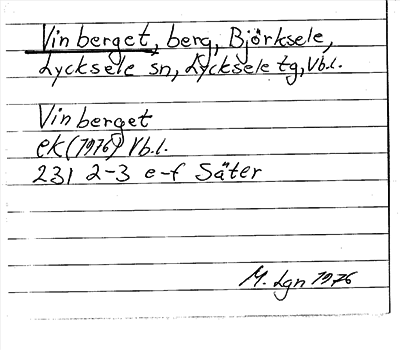 Vinberget, berg, Björksele,
Lycksele sn, Lycksele tg, Vb.l.
Vinberget
ek (1976) Vb.l.
231 2-3 e-f Säter
M. Lgn 1976